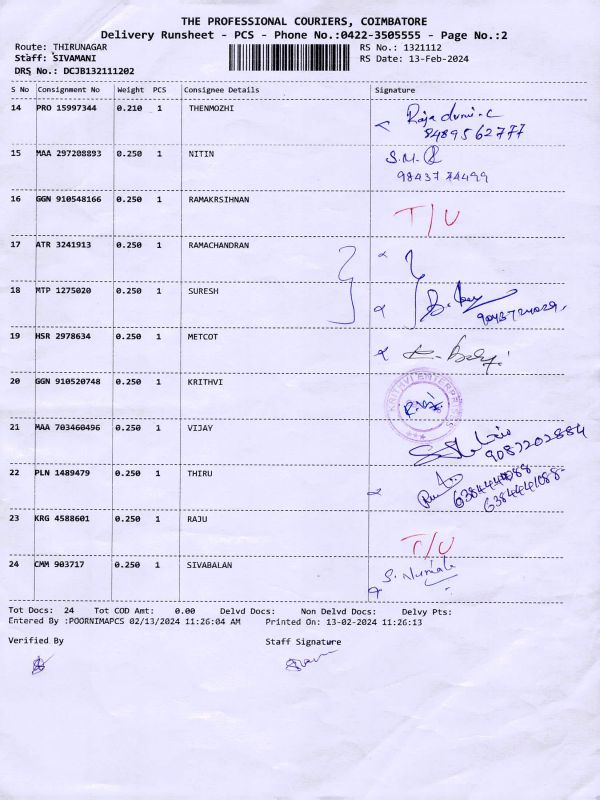 THE PROFESSIONAL COURIERS, COIMBATORE
Delivery Runsheet - PCS - Phone No.:0422-3505555 - Page No.:2
Route: THIRUNAGAR RS No.: 1321112
Staff: SIVAMANI RS Date: 13-Feb-2024
DRS No.: DCJB132111202
S No Consignment No Weight PCS Consignee Details Signature
14 PRO 15997344 0.210 1 THENMOZHI
8489562777
15 MAA 297208893 0.250 1 NITIN S.M.
98437 74499
16 GGN 910548166 0.250 1 RAMAKRSIHNAN T/U
17 ATR 3241913 0.250 1 RAMACHANDRAN
18 MTP 1275020 0.250 1 SURESH
19 HSR 2978634 0.250 1 METCOT
20 GGN 910520748 0.250 1 KRITHVI KRITHVI ENTERPRISES
21 MAA 703460496 0.250 1 VIJAY
9087202884
22 PLN 1489479 0.250 1 THIRU
6384441088
23 KRG 4588601 0.250 1 RAJU T/U
24 CMM 903717 0.250 1 SIVABALAN
Tot Docs: 24 Tot COD Amt: 0.00 Delvd Docs: Non Delvd Docs: Delvy Pts:
Entered By :POORNIMAPCS 02/13/2024 11:26:04 AM Printed On: 13-02-2024 11:26:13
Verified By Staff Signature